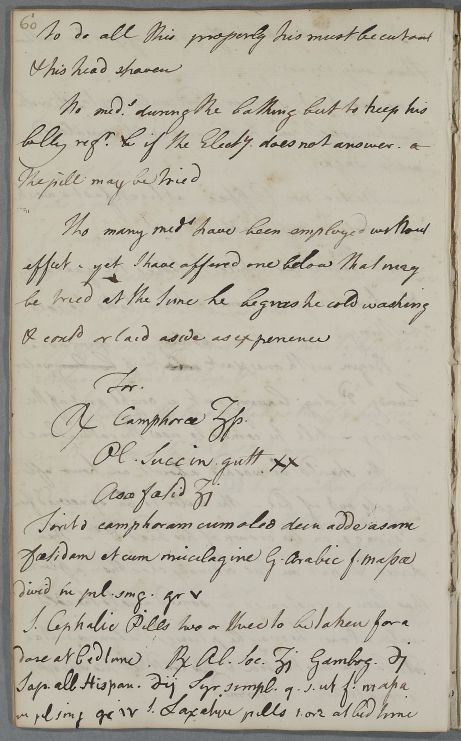 60
To do all this properly his must be cut out
& his head shaven
No med.s during the bathing but to keep his
belly reg.r & if the Elect.y does not answer. a
The pill may be tried
Tho many med.s have been employed without
effect - yet I have affixed one below that may
be tried at the time he begins the cold washing
& cont.d or laid aside as experience
For.
℞ Camphoræ ʒß.
Ol. Succin. gutt. xx
Asæ fætid ʒj
Tirit.d camphoram cum oleo dein adde asam
fœtidam et cum mucilagine G. Arabic f. massa
divid in pil. sing. gr v
S. Cephalic Pills two or three to be taken for a
dose at bedtime. ℞ Al. Soc. ʒj Gambog. ℈j
Sap. all Hispan. ℈ij Syr. simpl. q. s. ut f. massa
in pil sing gr iv S. Laxative pills 1. or 2 at bed time